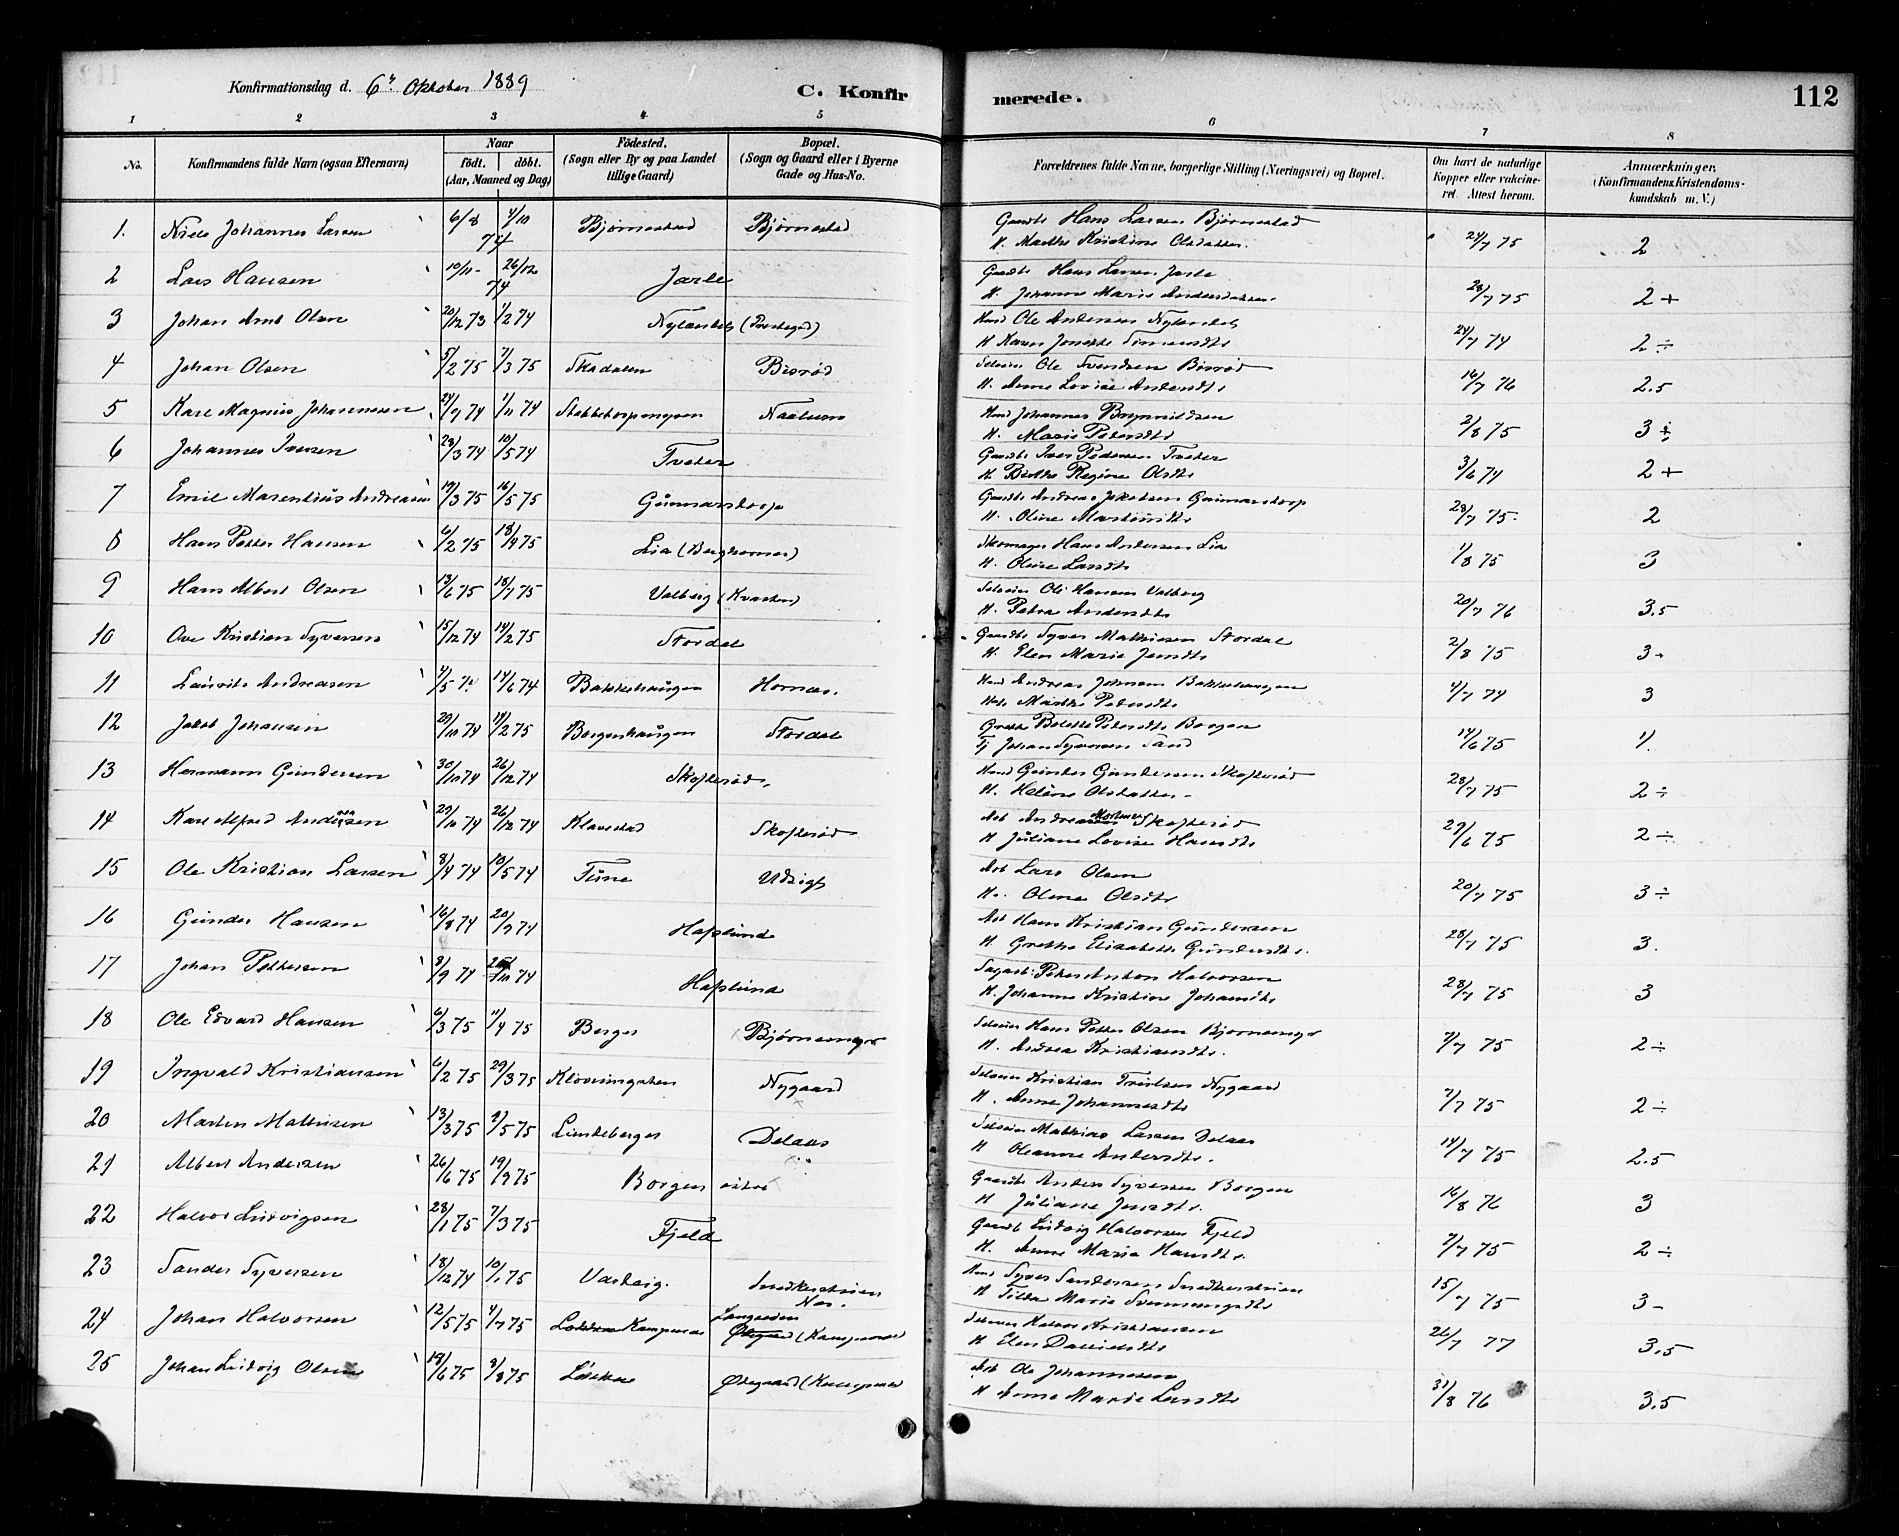 Konfirmationsdag d. 6te Oktober 1889
C. Konfirmerede.
112
1 2 3 4 5 6 7 8
No. Konfirmandens fulde Navn (ogsaa Efternavn) Naar födt. döbt. (Aar, Maaned og Dag) Födested. (Sogn eller By og paa Landet tillige Gaard) Bopæl. (Sogn og Gaard eller i Byerne Gade og Hus-No. Forældrenes fulde Navne, borgerlige Stilling (Næringsvei) og Bopæl. Om havt de naturlige Kopper eller vakcineret. Attest herom. Anmærkninger, (Konfirmandens Kristendomskundskab m. V.)
1. Niels Johannes Larsen 6/8 4/10 74 Bjørnestad Bjørnestad Gaardbr Hans Larsen Bjørnestad 24/7 75 2
H. Marthe Kristine Olsdatter.
2 Lars Hansen 10/11 26/12 74 Jarle Gaardbr Hans Larsen Jarle 28/7 75 2+
H. Johanne Marie Andersdatter.
3 Johan Arnt Olsen 20/12 73 1/2 74 Nylandet (Prestegrd) Hmd Ole Andersen Nylandet 24/7 74 2÷
H Karen Josefte Simensdtr
4 Johan Olsen 5/2 75 7/3 75 Skadalen Bisrød Selveier Ole Svendsen Bisrød 16/7 76 2.5
H. Anne Lovise Andersdtr
5 Karl Magnus Johannesen 24/9 74 1/11 74 Stabbetorpengen Naalum Hmd Johannes Brynnildsen 2/8 75 3÷
H. Marie Petersdtr
6 Johannes Iversen 28/3 74 10/5 74 Tveter Gaardbr Iver Pedersen Tveter 3/6 74 2+
H. Birthe Regine Olsdtr
7 Emil Marentius Andreasen 19/3 75 16/5 75 Gunnarstorp Gaardbr Andreas Jakobsen Gunnarstorp 28/7 75. 2
H. Oline Martinsdtr
8 Hans Petter Hansen 6/2 75 18/4 75 Lia (Berghornes) Skomager Hans Andersen Lia 1/8 75 3
H. Oline Larsdtr
9 Hans Albert Olsen 13/6 75 18/7 75 Valberg (Kvasten) Selveier Ole Hansen Valberg 20/7 76 3,5
H. Petra Andersdtr
10 Ove Kristian Syversen 15/12 74 14/2 75 Stordal Gaardbr Syver Mathisen Stordal 2/8 75 3-
H. Elen Marie Jensdtr
11 Laurits Andreasen 4/5 74 14/6 74 Bakkehaugen Hornæs. Hmd Andreas Johnsen Bakkehaugen 4/7 74 3
H. Marthe Petersdtr
12 Jakob Johansen 29/11 74 14/2 75 Borgenhaugen Stordal Grethe Bolette Petersdtr Borgen 14/6 75 1
Tj Johan Syversen Sand
13 Hermann Gundersen 30/10 74 26/12 74 Skofterød. Hmd Gunder Gundersen Skofterød 28/7 75 2÷
H. Helène Olsdatter
14 Karl Alfred Andersen 29/10 74 26/12 74 Klavestad Skofterød Arb Andreas Mortensen Skofterød 29/6 75 2÷
H Juliane Lovise Hansdtr
15 Ole Kristian Larsen 8/4 74 10/5 74 Tune Udsigt Arb Lars Olsen 20/7 75 3÷
H. Oline Olsdtr
16 Gunder Hansen 16/8 74 20/9 74 Hafslund Arb Hans Kristian Gundersen 28/7 75 3.
H Grethe Elisabeth Gundersdtr.
17 Johan Pettersen 8/9 74 74 Hafslund Sagarb. Peter Anton Halvorsen 28/7 75 3
H. Johanne Kristine Johansdtr
18 Ole Edvard Hansen 6/3 75 11/4 75 Berger Bjørnemyr Selveier Hans Petter Olsen Bjørnemyr 7/7 75 2÷
H. Andrea Kristiansdtr.
19 Ingvald Kristiansen 6/2 75 29/3 75 Kloveningsten Nygaard Selveier Kristian Truelsen Nygaard 7/7 75 2÷
H. Anne Johannesdtr
20 Martin Mathisen 13/3 75 9/5 75 Lundeberget Delaas Selveier Mathias Larsen Delaas 14/7 75 2.5
H Oleanne Andersdtr.
21 Albert Andersen 26/6 75 19/9 75 Borgen østre Gaardbr Anders Syversen Borgen 16/8 76 3
H Juliane Jensdtr.
22 Halvor Ludvigsen 28/1 75 7/3 75 Fjeld Gaardbr Ludvig Halvorsen Fjeld 7/7 75 2÷
H. Anne Marie Hansdtr.
23 Sander Syversen 18/12 74 10/1 75 Varteig. Smedkerstuen Næs. Hmd Syver Sandersen Smedkerstuen 15/7 75 3-
H Tilda Marie Svenningsdtr
24 Johan Halvorsen 12/5 75 4/7 75 Kampenæs Langeveien Østgaard (Kampenæs) Selveier Halvor Kristiansen 26/7 77 3,5
H Elen Davidsdtr
25 Johan Ludvig Olsen 19/6 75 8/8 75 Østgaard (Kampenæs Arb Ole Johannesen 31/8 76 3,5
H Anne Marie Larsdtr